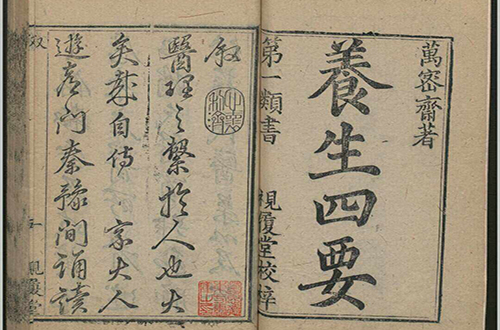 萬密齋著
養生四要
第一類書 視履堂校梓
叙
醫理之繫於人也大
矣哉自侍家大人
遊 門秦豫間誦讀
叙 一 視履堂